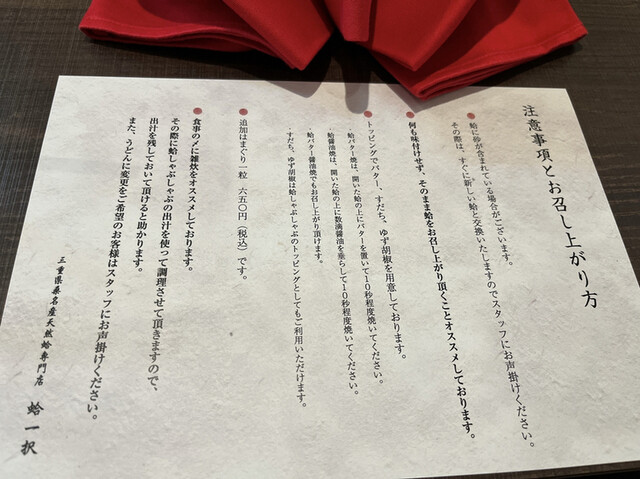 注意事項とお召し上がり方
蛤に砂が含まれている場合がございます。
その際は、すぐに新しい蛤と交換いたしますのでスタッフにお声掛けください。
何も味付けせず、そのまま蛤をお召し上がり頂くことオススメしております。
トッピングでバター、すだち、ゆず胡椒を用意しております。
蛤バター焼は、開いた蛤の上にバターを置いて10秒程度焼いてください。
蛤醤油焼は、開いた蛤の上に数滴醤油を垂らして10秒程度焼いてください。
蛤バター醤油焼でもお召し上がり頂けます。
すだち、ゆず胡椒は蛤しゃぶしゃぶのトッピングとしてもご利用いただけます。
追加はまぐり一粒 六五〇円（税込）です。
食事の〆に雑炊をオススメしております。
その際に蛤しゃぶしゃぶの出汁を使って調理させて頂きますので、
出汁を残しておいて頂けると助かります。
また、うどんに変更をご希望のお客様はスタッフにお声掛けください。
三重県桑名産天然蛤専門店 蛤一択